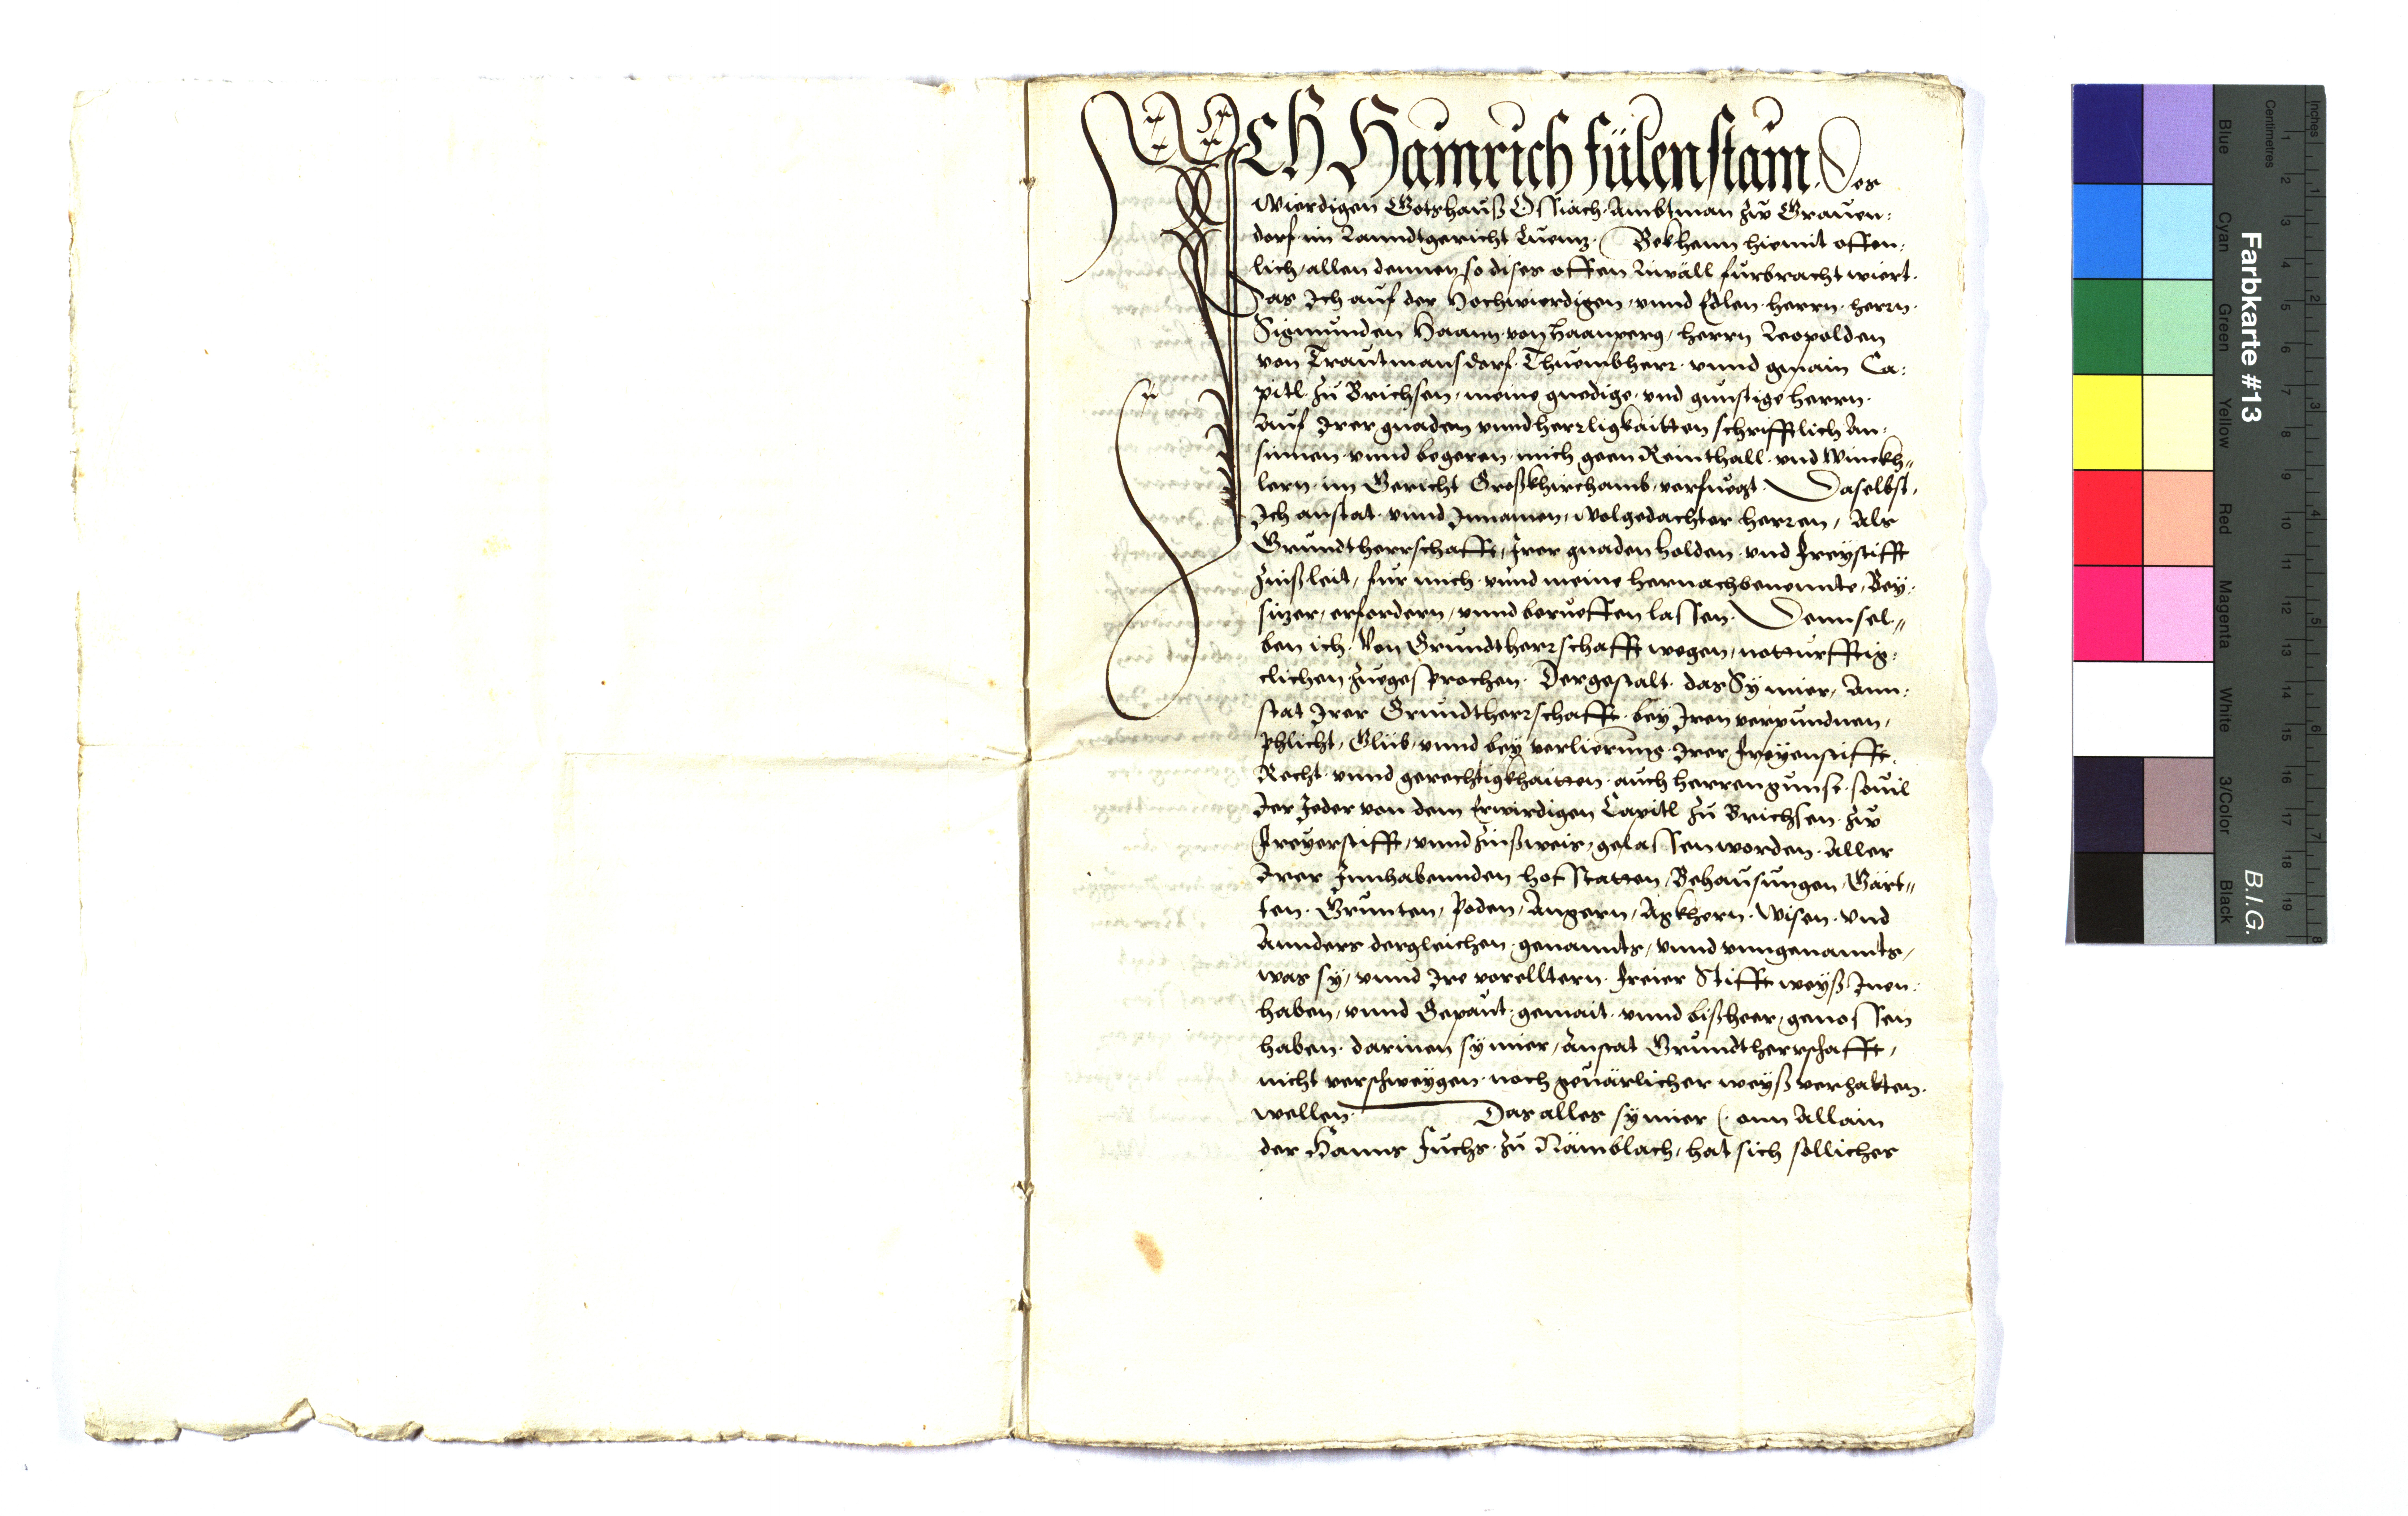 ICH Hainrich Fülenstain. Des
wierdigen Gotshauß Ossiach Ambtman zw Grauen:
dorf im Lanndtgericht Luenz. Bekhenn hiemit offen:
lich, allen dennen so dises offen Libäll furbracht wiert.
Das Ich auf der Hochwierdigen, vnnd Edlen herrn. herrn
Sigmunden Haann von Haanperg, herrn Leopolden
von Trautmansdorf Thuembherr vnnd gmain Ca:
pitl zu Brichsen, meine gnedige vnd gunstige herrn.
Auf Irer gnaden vnnd herrligkaitten schrifftlich An:
sinnen vnnd begeren mich geen Reinthall vnd Winckh„
lern im Gericht Großkhirchamb, verfuegt. Daselbst,
Ich anstat vnnd Innamen, wolgedachter herren, Als
Grundtherrschafft, Irer gnaden holden vnd Freystifft
Zinßleit, fur mich vnnd meine hernachbenennte, Bey:
sizer, erfordern, vnnd berueffen lassen. Dennsel„
ben ich. Von Grundtherrschafft wegen, notturfftig:
clichen Zuegesprochen. Dergestalt das Sy mier, Ann:
stat Irer Grundtherrschafft bey Iren verpundnen,
Phlicht, Glüb, vnnd bey verlierung Irer Freyenstifft.
Recht vnnd gerechtigkhaitten auch herren gunst souil
Der Jeder von dem Erwirdigen Capitl zu Brichsen zw
Freyerstifft, vnnd Zinßweis, gelassen worden. Aller
Irer Innhabennden hofstatten, Behausungen, Gärt„
ten. Grunten, Poden, Angern, Agkhern. Wisen vnd
Annders dergleichen, genannts, vnnd vnngenannts,
was sy, vnnd Ire vorelltern Freier Stifft weyß Inen:
haben, vnnd Gepaut gemait vnnd bißheer, genossen
haben. darinen sy mier, Anstat Grundtherrschafft,
nicht verschweygen noch geuärlicher weyß verhalten
wellen. Das alles sy mier (. onn Allain
der Hanns Fuchs zu Nämblach, hat sich solliches
Farbkarte #13
B.I.G.
Inches
Centimetres
1 2 3 4 5 6 7 8 9 10 11 12 13 14 15 16 17 18 19
1 2 3 4 5 6 7 8
Blue Cyan Green Yellow Red Magenta White 3/Color Black